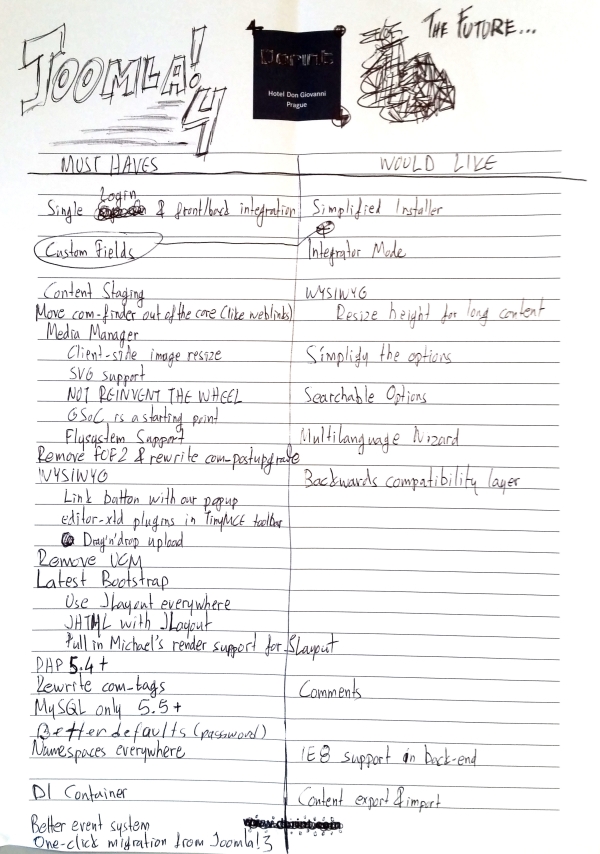 JOOMLA! 4
Dorint
Hotel Don Giovanni
Prague
THE FUTURE...
MUST HAVES
WOULD LIKE
Login
Single & front/back integration
Simplified Installer
Custom Fields
Integrator Mode
Content Staging
WYSIWYG
Move com-finder out of the core (like weblinks)
Resize height for long content
Media Manager
Client-side image resize
Simplify the options
SVG support
NOT REINVENT THE WHEEL
Searchable Options
GSoC is a starting point
Flysystem Support
Multilanguage Wizard
Remove FOF2 & rewrite com-postupgrate
WYSIWYG
Backwards compatibility layer
Link button with our popup
editor-xtd plugins in TinyMCE toolbar
Drag'n'drop upload
Remove UCM
Latest Bootstrap
Use JLayout everywhere
JHTML with JLayout
Pull in Michael's render support for JLayout
PHP 5.4+
Rewrite com-tags
Comments
MySQL only 5.5+
Better defaults (password)
Namespaces everywhere
IE8 support in back-end
DI Container
Content export & import
Better event system
www.dorint.com
One-click migration from Joomla!3